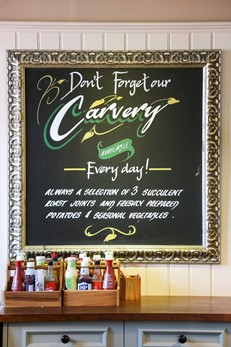 Don't Forget our
Carvery
AVAILABLE
Every day!
ALWAYS A SELECTION OF 3 SUCCULENT
ROAST JOINTS AND FRESHLY PREPARED
POTATOES & SEASONAL VEGETABLES.